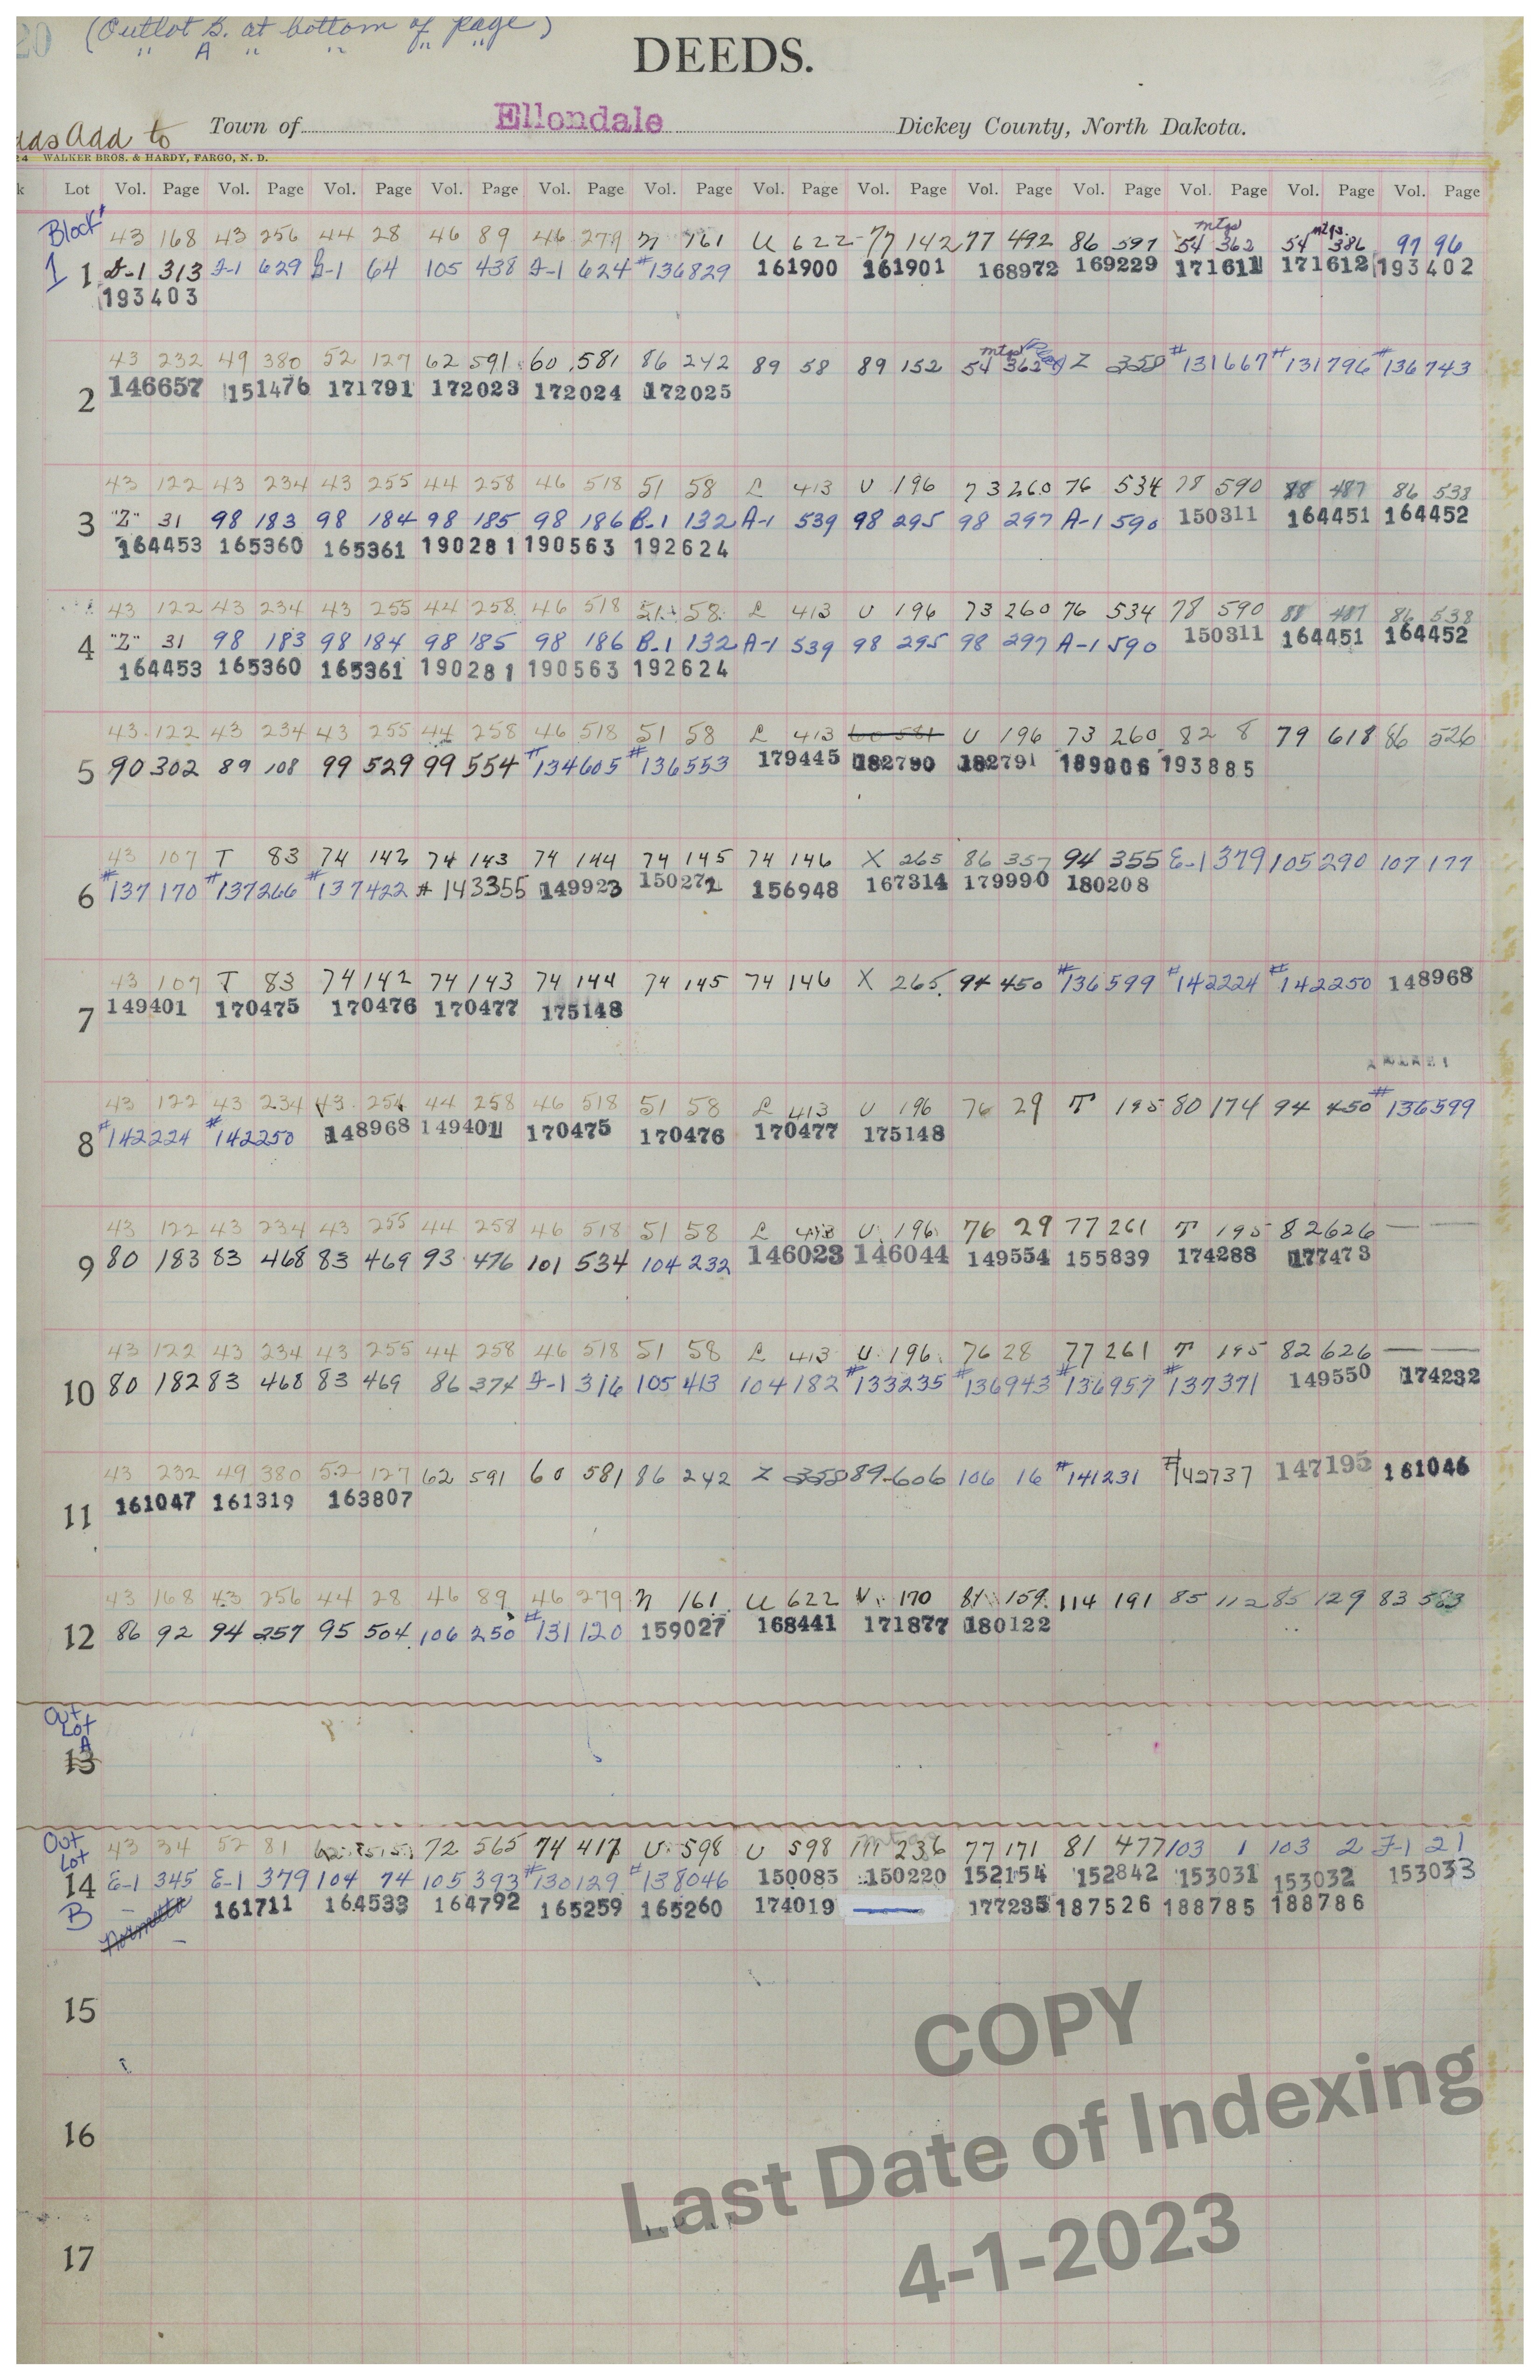 20 (Outlot B. at bottom of page)
" A " " " "
DEEDS.
Add to Town of Ellondale Dickey County, North Dakota.
24 WALKER BROS. & HARDY, FARGO, N. D.
k Lot Vol. Page Vol. Page Vol. Page Vol. Page Vol. Page Vol. Page Vol. Page Vol. Page Vol. Page Vol. Page Vol. Page Vol. Page Vol. Page
Block mtgs mtgs
43 168 43 256 44 28 46 89 46 279 N 161 U 622 77 142 77 492 86 597 54 362 54 386 97 96
1 1 313 629 64 105 438 624 #136829 161900 161901 168972 169229 171611 171612 193402
193403
43 232 49 380 52 127 62 591 60 581 86 242 89 58 89 152 mtgs 54 362 Z 358 #131667 #131796 #136743
2 146657 151476 171791 172023 172024 172025
43 122 43 234 43 255 44 258 46 518 51 58 L 413 U 196 73 260 76 534 78 590 88 487 86 538
3 "Z" 31 98 183 98 184 98 185 98 186 B-1 132 A-1 539 98 295 98 297 A-1 590 150311 164451 164452
164453 165360 165361 190281 190563 192624
43 122 43 234 43 255 44 258 46 518 51 58 L 413 U 196 73 260 76 534 78 590 88 487 86 538
4 "Z" 31 98 183 98 184 98 185 98 186 B-1 132 A-1 539 98 295 98 297 A-1 590 150311 164451 164452
164453 165360 165361 190281 190563 192624
43 122 43 234 43 255 44 258 46 518 51 58 L 413 60 581 U 196 73 260 82 8 79 618 86 526
5 90 302 89 108 99 529 99 554 #134605 #136553 179445 182790 182791 189006 193885
43 107 T 83 74 142 74 143 74 144 74 145 74 146 X 265 86 357 94 355 E-1 379 105 290 107 177
6 #137170 #137266 #137422 #143355 149923 150272 156948 167314 179990 180208
43 107 T 83 74 142 74 143 74 144 74 145 74 146 X 265 94 450 #136599 #142224 #142250 148968
7 149401 170475 170476 170477 175148
43 122 43 234 43 254 44 258 46 518 51 58 L 413 U 196 76 29 T 195 80 174 94 450 #136599
8 #142224 #142250 148968 149401 170475 170476 170477 175148
43 122 43 234 43 255 44 258 46 518 51 58 L 413 U 196 76 29 77 261 T 195 82 626 — —
9 80 183 83 468 83 469 93 476 101 534 104 232 146023 146044 149554 155839 174288 177473
43 122 43 234 43 255 44 258 46 518 51 58 L 413 U 196 76 28 77 261 T 195 82 626 — —
10 80 182 83 468 83 469 86 374 316 105 413 104 182 #133235 #136943 #136957 #137371 149550 174232
43 232 49 380 52 127 62 591 60 581 86 242 Z 358 89 606 106 16 #141231 #142737 147195 161046
11 161047 161319 163807
43 168 43 256 44 28 46 89 46 279 N 161 U 622 V 170 81 159 114 191 85 112 85 129 83 563
12 86 92 94 257 95 504 106 250 #131120 159027 168441 171877 180122
Out
Lot
A
13
Out 43 34 52 81 72 565 74 417 U 598 U 598 236 77 171 81 477 103 1 103 2 F-1 21
Lot
14 E-1 345 E-1 379 104 74 105 393 #130129 #138046 150085 150220 152154 152842 153031 153032 153033
B 161711 164533 164792 165259 165260 174019 — 177235 187526 188785 188786
15
16
17
COPY
Last Date of Indexing
4-1-2023